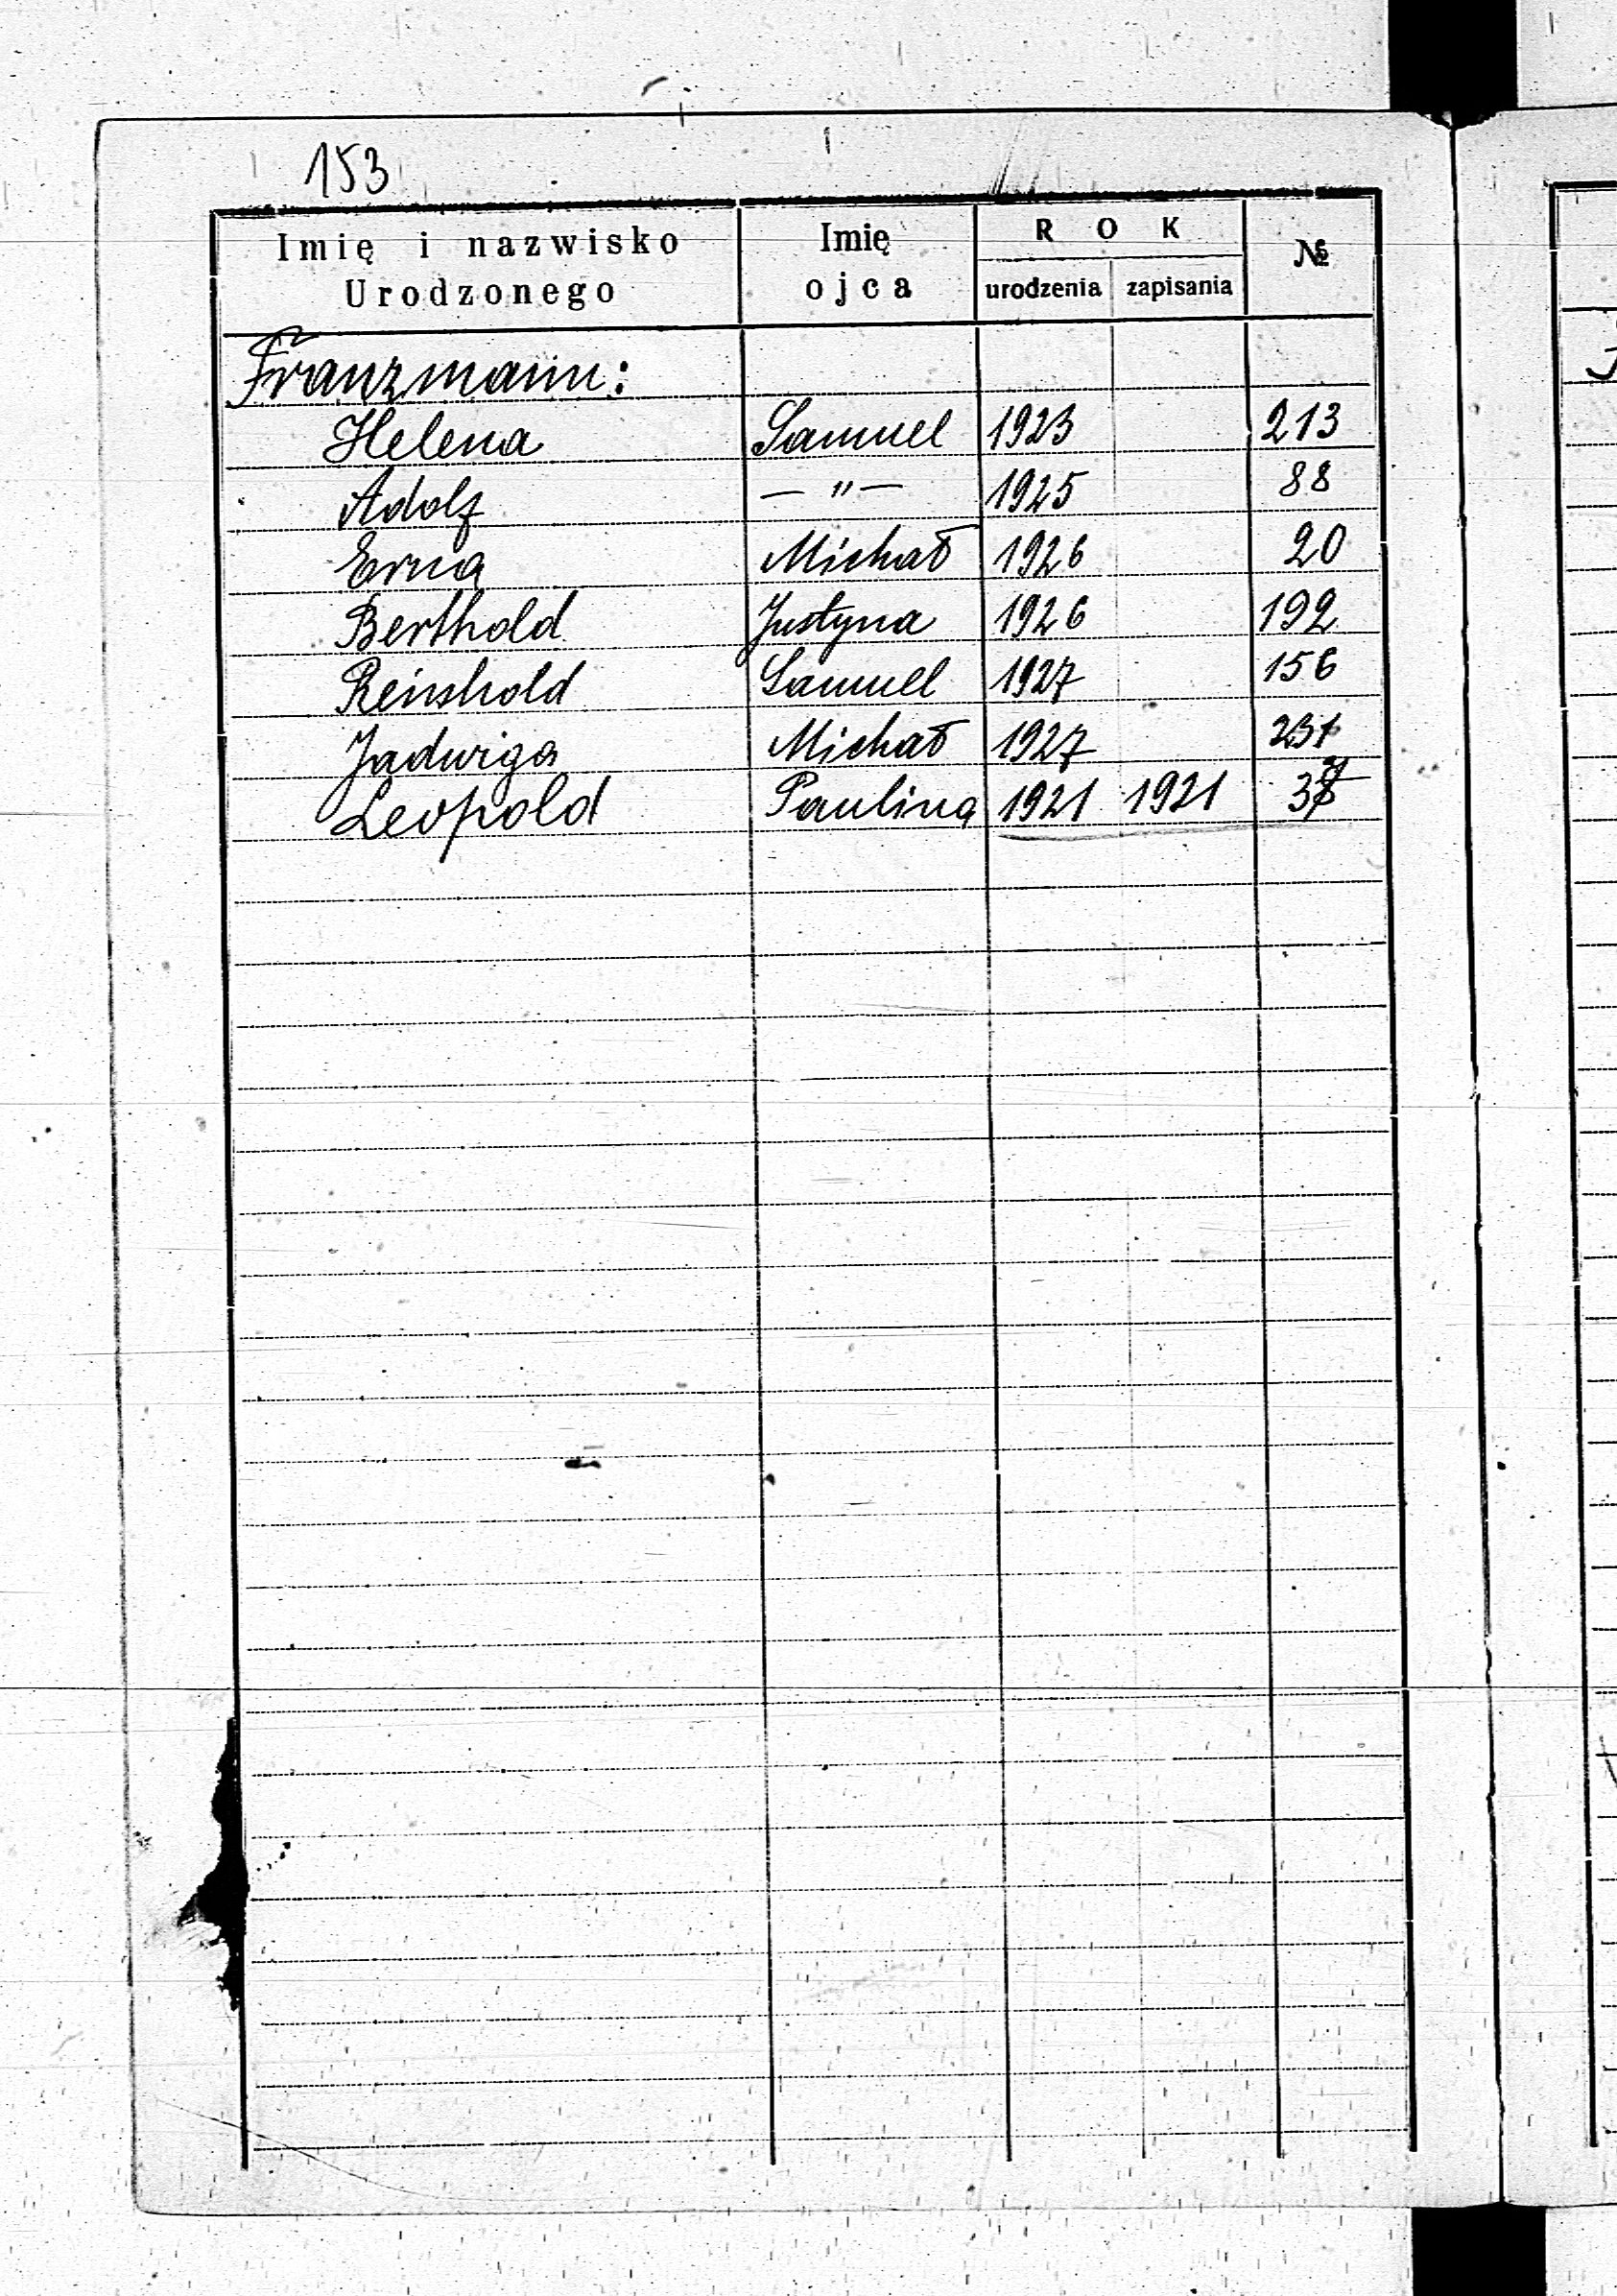 153
Imię i nazwisko Urodzonego | Imię ojca | ROK urodzenia | ROK zapisania | №
Franzmann:
Helena | Samuel | 1923 | | 213
Adolf | — " — | 1925 | | 88
Erna | Michał | 1926 | | 20
Berthold | Justyna | 1926 | | 192
Reinhold | Samuel | 1927 | | 156
Jadwiga | Michał | 1927 | | 231
Leopold | Paulina | 1921 | 1921 | 37